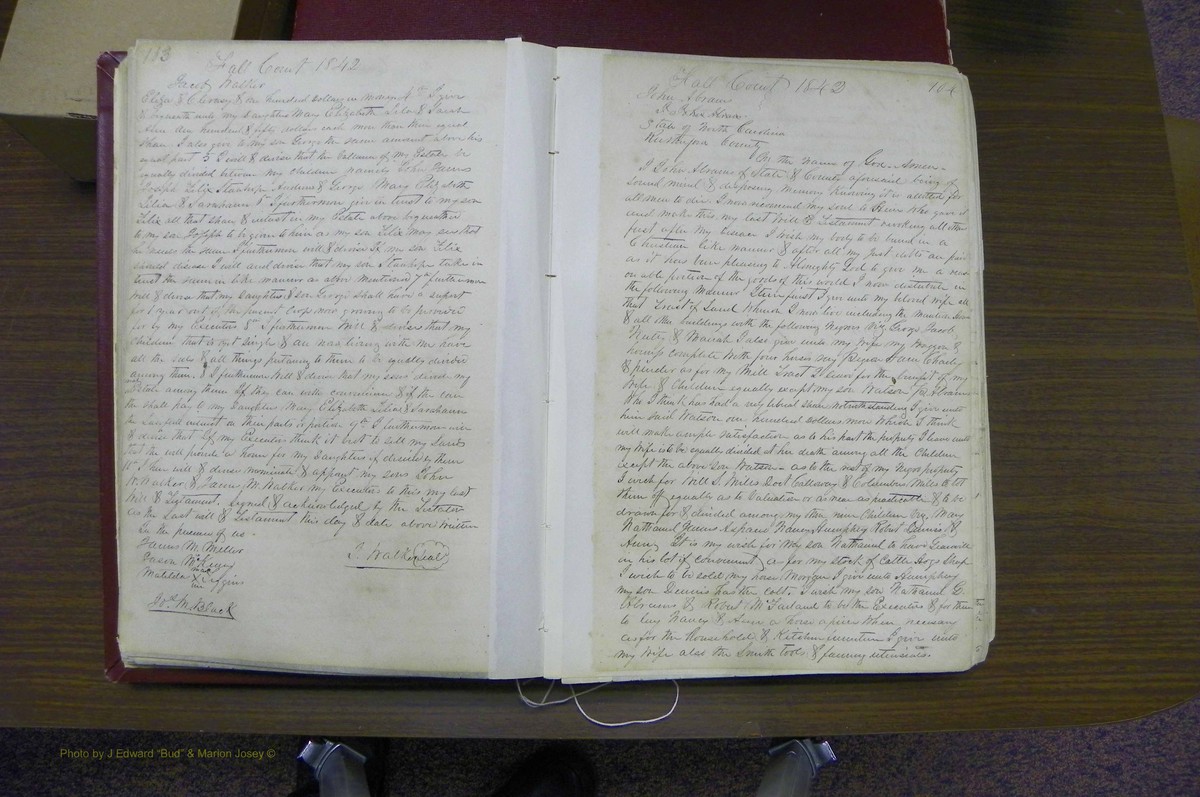 163
Fall Court 1842
Jacob Walker
Eliza & Cleroay & one hundred dollars in money 4th I give
& bequeath unto my daughters Mary Elizabeth Lelia & Sarah
Ann one hundred & fifty dollars each more than their equal
share I also give to my son George the same amount above his
equal part 5 I will & devise that the balance of my Estate be
equally divided between my children namely John James
Joseph Felix Stanhope Andrew & George Mary Elizabeth
Lelia & Sarahann 6th I furthermore give in trust to my son
Felix all that share & interest in my Estate above bequeathed
to my son Joseph to be given to him as my son Felix may see that
he needs the same I furthermore will & devise If my son Felix
should decease I will and devise that my son Stanhope take in
trust the same in like manner as above mentioned 7th furthermore
will & devise that my daughters & son George shall have a support
for 1 year out of the present crop now growing to be provided
for by my Executors 8th I furthermore will & devise that my
children that is yet single & are now living with me have
all the beds & all things pertaining to them to be equally divided
among them 9 I furthermore will & devise that my sons divide my
Estate among them If they can with convenience & if they can
the shall pay to my daughters Mary Elizabeth Lelia & Sarahann
the lawfull interest on their parts or portion 9th I furthermore will
& devise that if my Executors think it best to sell my lands
that the will provide a home for my daughters if desired by them
10th I here will & devise nominate & appoint my sons John
W. Walker & James M. Walker my Executors to this my last
Will & Testament. Signed & acknowledged by the Testator
as the Last will & Testament this day & date above written
In the presence of us
James M. Miller
Jason McKiney
Matilda X Siggins
J. Walker Seal
Jos. M. Black
Fall Court 1842
164
John Abrams
State of North Carolina
Rutherford County
In the name of God Amen
I John Abrams of State & County aforesaid being of
sound mind & disposing memory knowing it is allotted for
all men to die I now recommend my soul to Him who gave it
and make this my last Will & Testament revoking all others
first after my decease I wish my body to be buried in a
Christian like manner & after all my just debts are paid
as it has been pleasing to Almighty God to give me a reason
on able portion of the goods of this world I now distribute in
the following manner Item first I give unto my beloved wife all
that Tract of Land whereon I now live including the Mansion House
& all other buildings with the following Negroes Viz George Jacob
& Mariah I also give unto my wife my Waggon &
harness complete with four horses viz Ham Charly
& as for my Mill Tract I leave for the benefit of my
Wife & Children equally except my son Watson B. Abrams
Who I think has had a very liberal share notwithstanding I give unto
him said Watson one hundred dollars more Which I think
will make ample satisfaction as to his part the property I leave unto
my Wife is to be equally divided at her death among all the Children
except the above son Watson as to the rest of my Negro property
I wish for Will S. Mills Doct Calloway & Columbus Mills to lot
them off equally as to Valuation or as near as practicable & to be
drawn for & divided among my other nine Children Viz, Mary
Nathaniel Nancy Humphrey Robert Dennis &
Ann, It is my wish for my son Nathaniel to have
in his lot if convenient & as for my stock of Cattle Hogs Sheep
I wish to be sold my horse Morgan I give unto Humphrey
my son Dennis has the colt. I wish my son Nathaniel G.
Abrams & Robert McFarland to be the Executors & for them
to buy Nancy & Ann a horse apiece when necessary
as for the Household & Kitchen furniture I give unto
my Wife also the Smith Tools & farming utensials.
Photo by J Edward "Bud" & Marion Josey ©